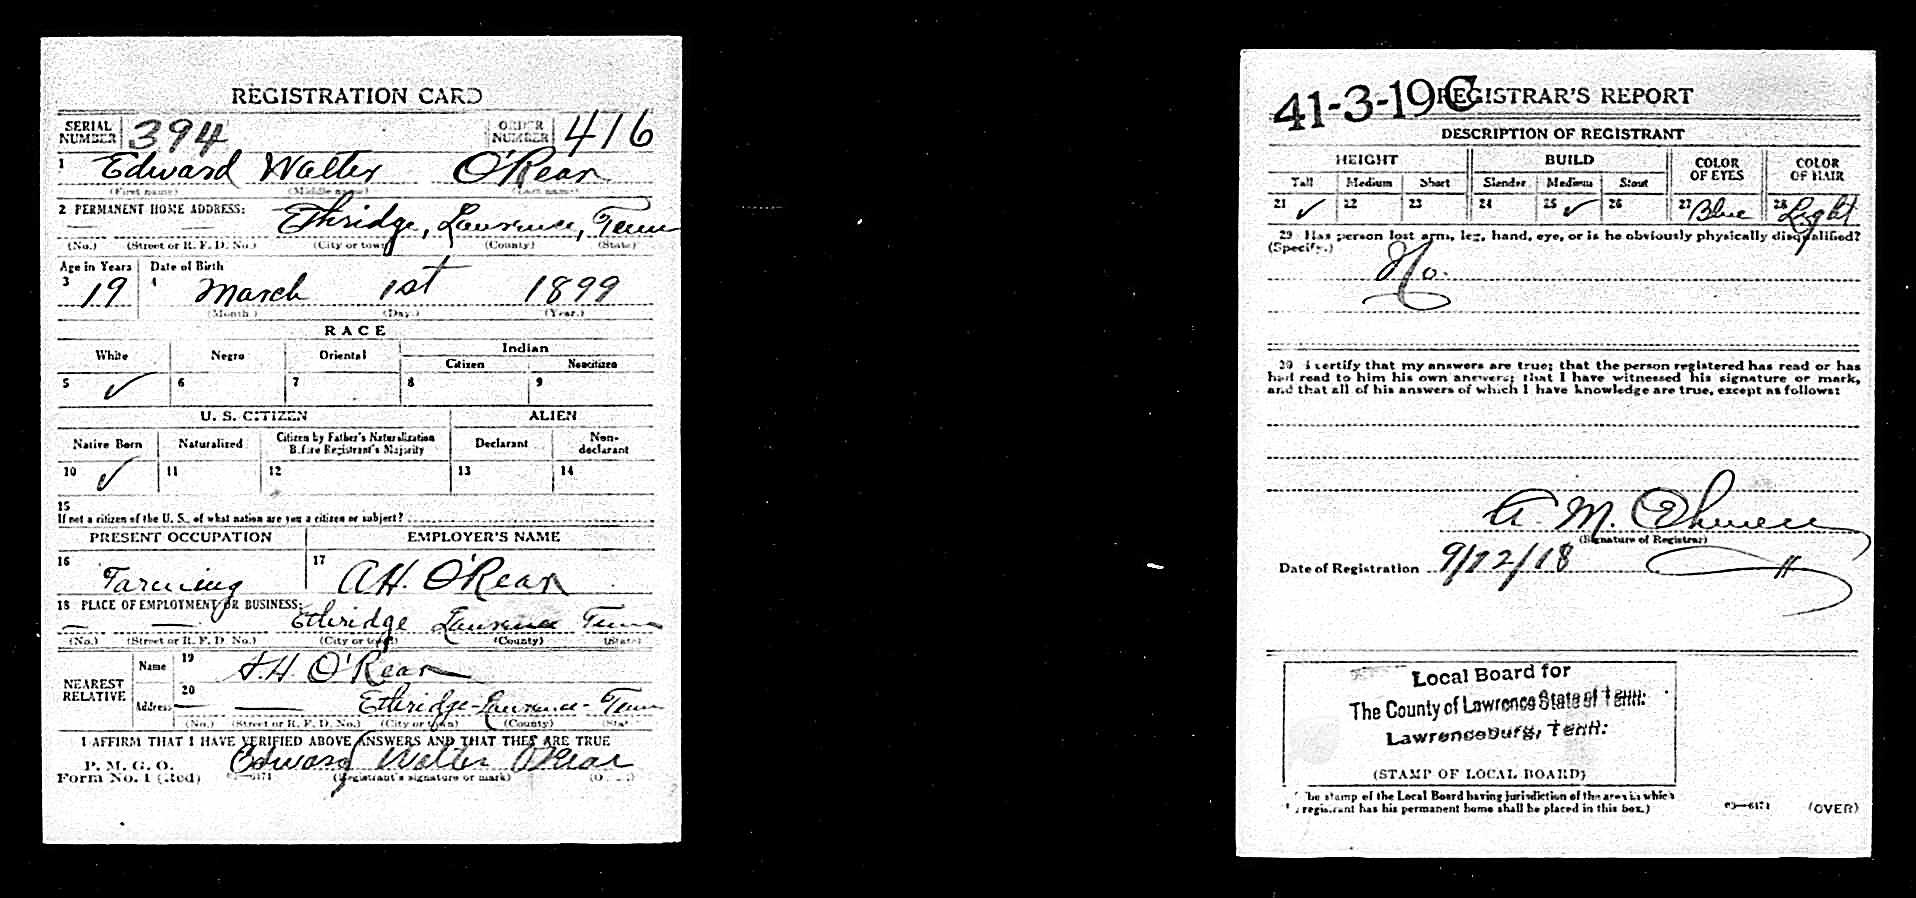 REGISTRATION CARD
SERIAL NUMBER 394 ORDER NUMBER 416
1 Edward Walter O'Rear
(First name) (Middle name) (Last name)
2 PERMANENT HOME ADDRESS:
— — Ethridge, Lawrence, Tenn
(No.) (Street or R. F. D. No.) (City or town) (County) (State)
Age in Years Date of Birth
3 19 4 March 1st 1899
(Month.) (Day.) (Year.)
RACE
White Negro Oriental Indian
Citizen Noncitizen
5 ✓ 6 7 8 9
U. S. CITIZEN ALIEN
Native Born Naturalized Citizen by Father's Naturalization Before Registrant's Majority Declarant Non-declarant
10 ✓ 11 12 13 14
15
If not a citizen of the U. S., of what nation are you a citizen or subject?
PRESENT OCCUPATION EMPLOYER'S NAME
16 Farming 17 A.H. O'Rear
18 PLACE OF EMPLOYMENT OR BUSINESS:
— — Ethridge Lawrence Tenn
(No.) (Street or R. F. D. No.) (City or town) (County) (State)
NEAREST RELATIVE Name 19 O'Rear
Address 20 — Ethridge-Lawrence-Tenn
(No.) (Street or R. F. D. No.) (City or town) (County) (State)
I AFFIRM THAT I HAVE VERIFIED ABOVE ANSWERS AND THAT THEY ARE TRUE
P. M. G. O.
Form No. 1 (Red) 03—6171 Edward Walter O'Rear
(Registrant's signature or mark) (OVER)
41-3-19 C REGISTRAR'S REPORT
DESCRIPTION OF REGISTRANT
HEIGHT BUILD COLOR OF EYES COLOR OF HAIR
Tall Medium Short Slender Medium Stout
21 ✓ 22 23 24 25 ✓ 26 27 Blue 28 Light
29 Has person lost arm, leg, hand, eye, or is he obviously physically disqualified?
(Specify.)
No.
30 I certify that my answers are true; that the person registered has read or has
had read to him his own answers; that I have witnessed his signature or mark,
and that all of his answers of which I have knowledge are true, except as follows:
M.
(Signature of Registrar)
Date of Registration 9/12/18
Local Board for
The County of Lawrence State of Tenn.
Lawrenceburg, Tenn.
(STAMP OF LOCAL BOARD)
(The stamp of the Local Board having jurisdiction of the area in which
registrant has his permanent home shall be placed in this box.)
03—6171 (OVER)